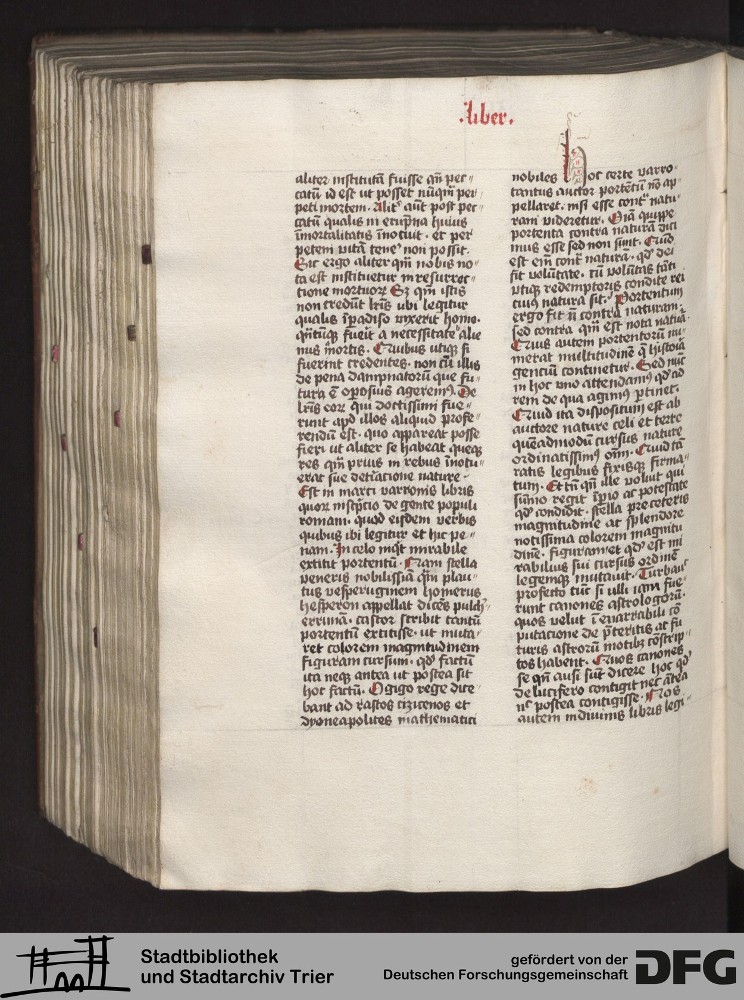 .liber.
aliter institutā fuisse qn̄ pec-
catū id est ut posset nūqm̄ per
peti mortem. Alit' aūt post pec-
catū qualis in erūpna huius
īmortalitatis īnotuit. et per
petem vitā tene' non possit.
Sic ergo aliter qm̄ nobis no-
ta est instituetur in resurrec-
tione mortuoꝝ Sꝫ qm̄ istis
non credūt lr̄is ubi legitur
qualis ī padiso vixerit homo.
qn̄tūqꝫ fueit a necessitate alie
nus mortis. Quibus utiqꝫ si
fuerint credentes. non cū illis
de pena dampnatorū que fu-
tura ē opōsius agerem9. De
lr̄is eoꝝ qui doctissimi fue-
runt apd illos aliquid profe-
rendū est. quo appareat posse
fieri ut aliter se habeat queqꝫ
res qm̄ prius in rebus īnotu-
erat sue det'iatione nature.
Est in marci varronis libris
quoꝝ inscp̄tio de gente populi
romani. quod eisdem verbis
quibus ibi legitur et hic po-
nam. In celo īnqt mirabile
extitit portentū. Nam stella
veneris nobilissiā qm̄ plau-
tus vesperuginem homerus
hesperon appellat dicēs pulch'-
errimā. castor scribit tantū
portentū extitisse. ut muta-
ret colorem magnitudinem
figuram cursum. qd' factū
ita neqꝫ antea ut postea sit
hoc factū. Ogigo rege dice-
bant ad rastos cizicenos et
dyoneapolites mathematici
nobiles Hoc certe varro
tantus auctor portentū nō ap-
pellaret. nisi esse cont' natu-
ram videretur. Oīa quippe
portenta contra naturā dici
mus esse sed non sunt. Quō
est em̄ cont' naturā. qd' dei
fit volūtate. cū volūtas tāti
utiqꝫ redemptoris condite rei
cuiusqꝫ natura sit. Portentum
ergo fit nō contra naturam.
sed contra qm̄ est nota natura.
Quis autem portentorū nu-
merat multitudinē q̄ historia
gentiū continetur. Sed nūc
in hoc vno attendam9 qd' ad
rem de qua agim9 ptinet.
Quid ita dispositum est ab
auctore nature celi et terre
quēadmodū cursus nature
ordinatissim9 om̄. Quid tā
ratis legibus fixisqꝫ firma-
tum. Et tn̄ qn̄ ille voluit qui
sūmo regit īpio ac potestate
qd' condidit. stella pre ceteris
magnitudine ac splendore
notissima colorem magnitu
dinē. figuram et qd' est mi
rabilius sui cursus ordinē
legemqꝫ mutauit. Turbauit
profecto tūc si ulli iam fue-
runt canones astrologorū.
quos velut ī enarrabili cō-
putacione de p̄teritis ac fu
turis astrorū motibꝫ cōscrip-
tos habent. Quos canones
se qn̄ ausi sūt dicere hoc qd'
de lucifero contigit nec ātea
nc̄ postea contigisse. Nos
autem in diuinis libris legi-
Stadtbibliothek
und Stadtarchiv Trier
gefördert von der
Deutschen Forschungsgemeinschaft
DFG